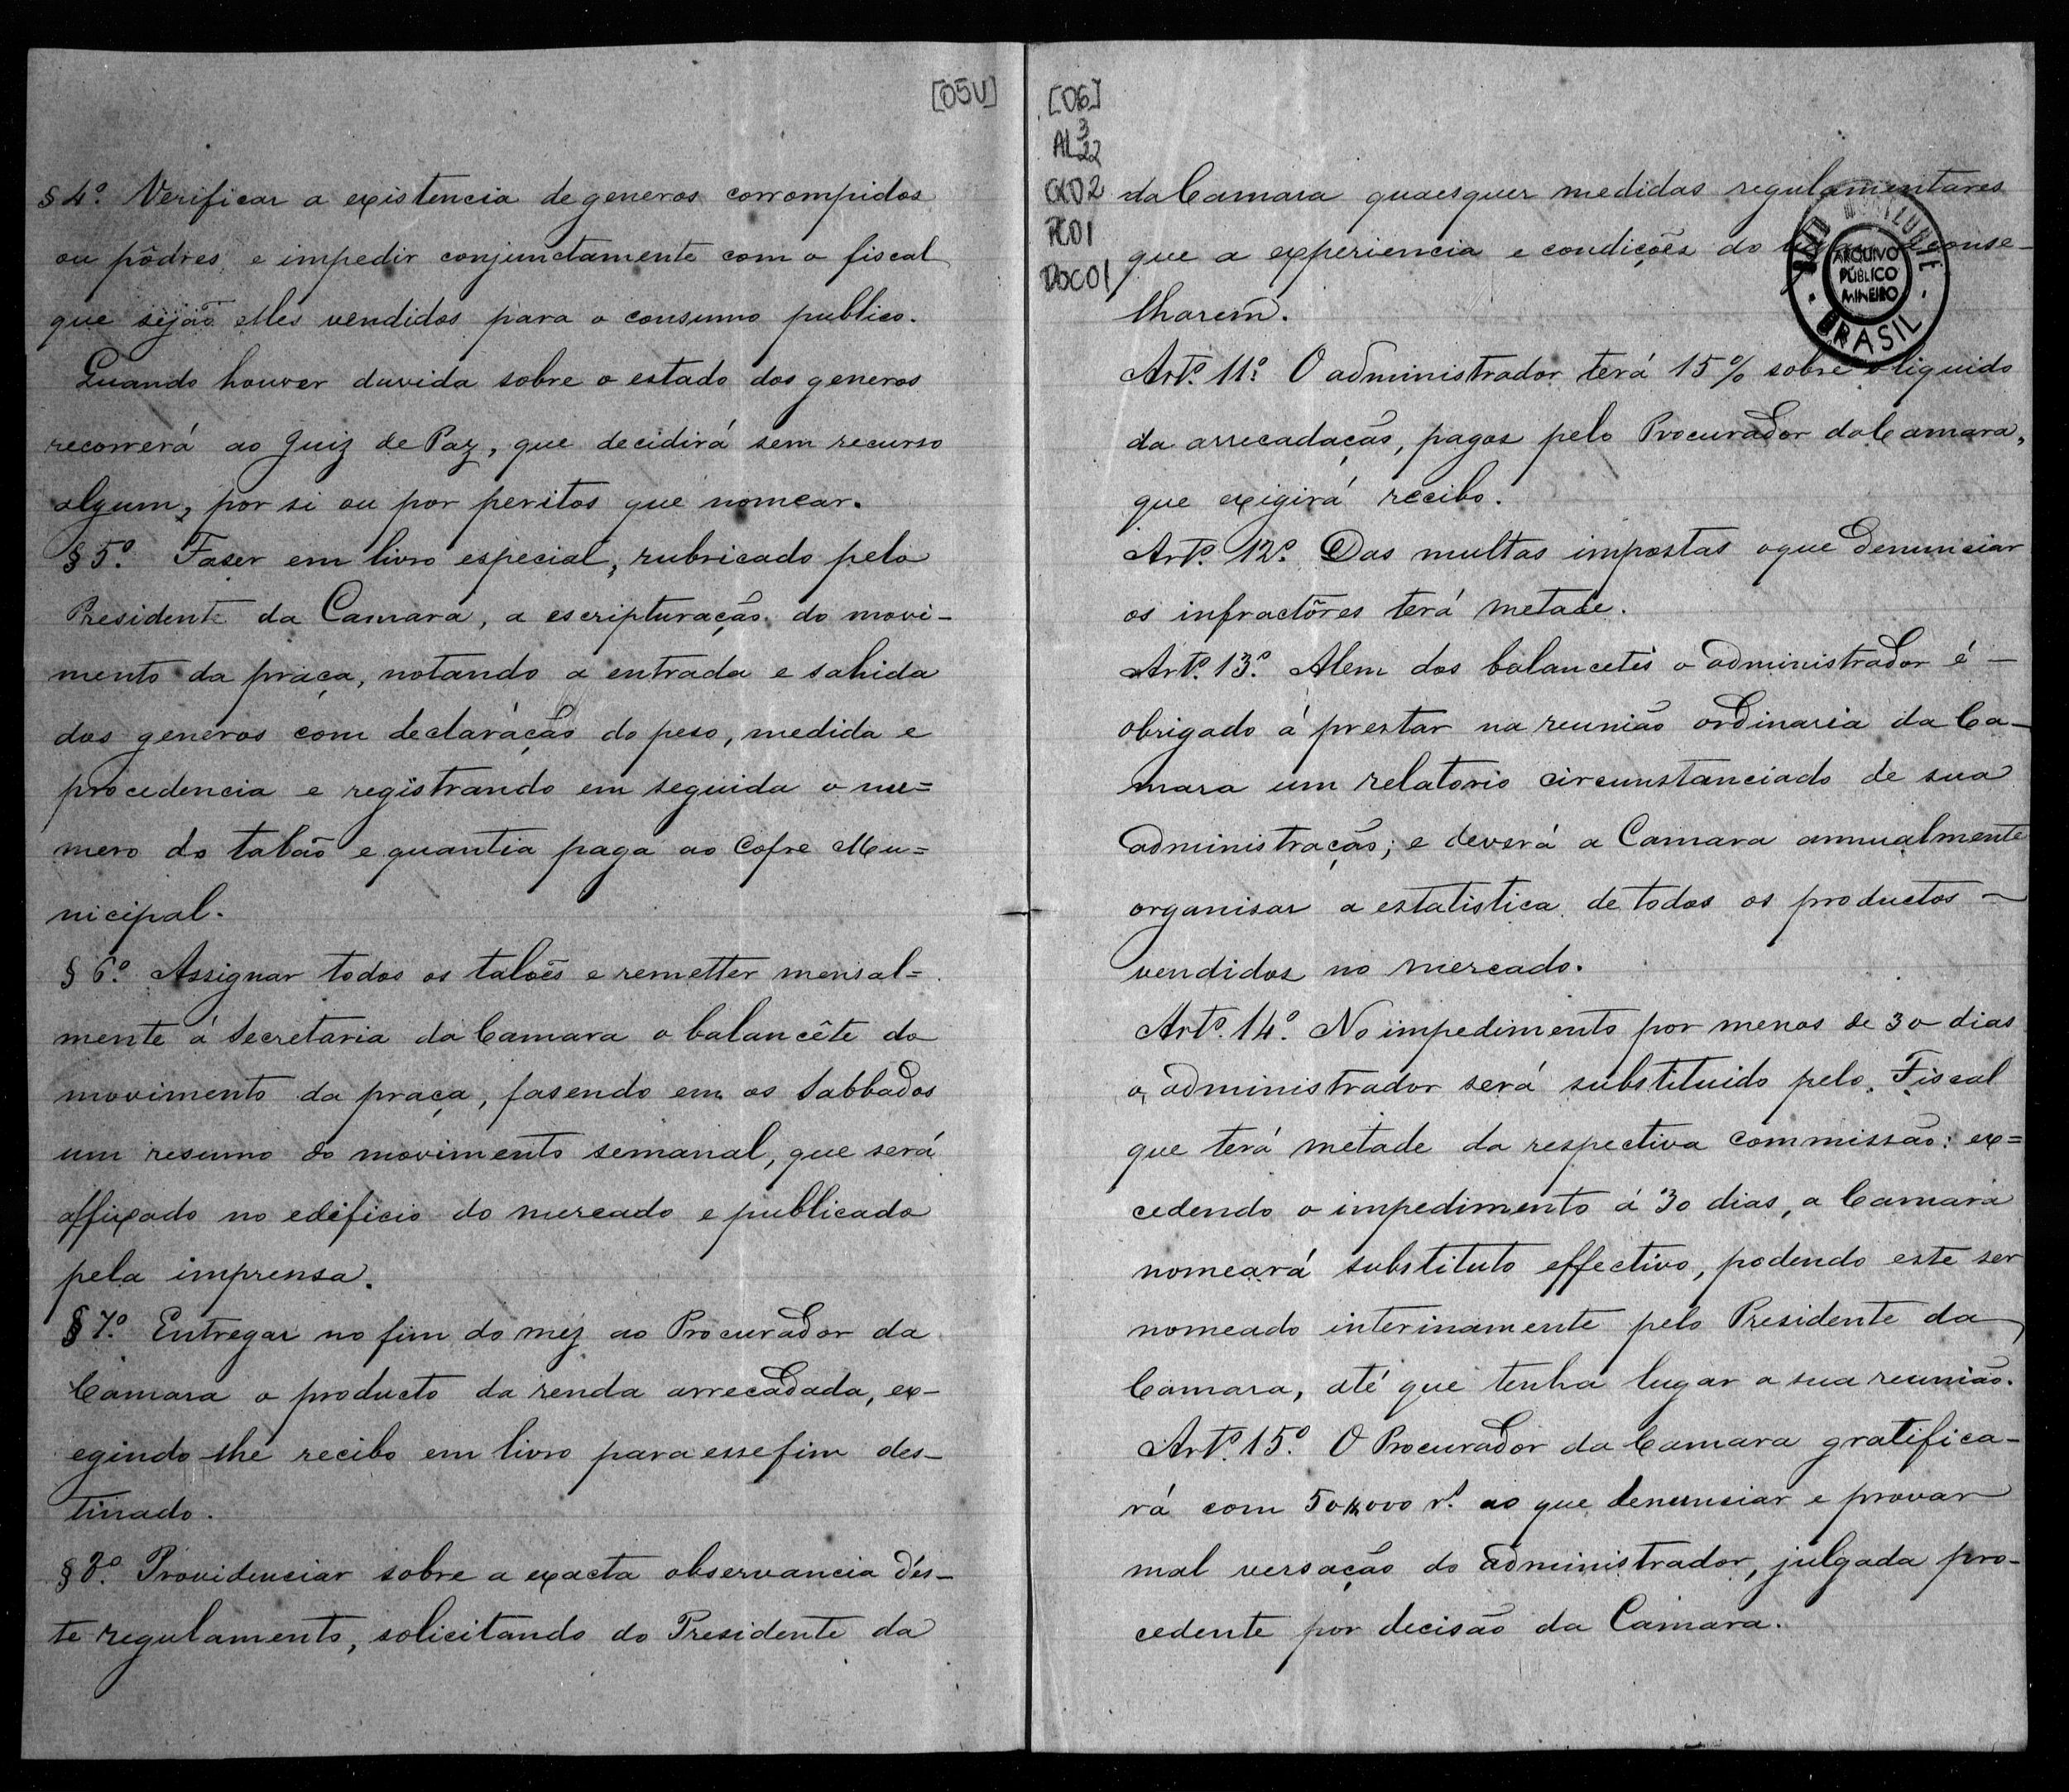 [05V]
§ 4.º Verificar a existencia de generos corrompidos
ou pôdres, e impedir conjunctamente com o fiscal
que sejão elles vendidos para o consumo publico.
Quando houver duvida sobre o estado dos generos
recorrerá ao Juiz de Paz, que decidirá sem recurso
algum, por si ou por peritos que nomear.
§ 5.º Faser em livro especial, rubricado pelo
Presidente da Camara, a escripturação do movi-
mento da praça, notando a entrada e sahida
dos generos com declaração do peso, medida e
procedencia e registrando em seguida o nu=
mero do talão e quantia paga ao Cofre Mu=
nicipal.
§ 6.º Assignar todos os talões e remetter mensal=
mente á Secretaria da Camara o balancête do
movimento da praça, fasendo em os Sabbados
um resumo do movimento semanal, que será
affixado no edificio do mercado e publicado
pela imprensa.
§ 7.º Entregar no fim do mez ao Procurador da
Camara o producto da renda arrecadada, ex-
egindo-lhe recibo em livro para esse fim des-
tinado.
§ 8.º Providenciar sobre a exacta observancia des-
te regulamento, solicitando do Presidente da
[06]
AL 3
22
CX02
PC01
DOC01
da Camara quaesquer medidas regulamentares
que a experiencia e condições do aconse-
lharem.
ARQUIVO
PÚBLICO
MINEIRO
BRASIL
Art.º 11.º O administrador terá 15% sobre o liquido
da arrecadação, pagos pelo Procurador da Camara,
que exigirá recibo.
Art.º 12.º Das multas impostas o que denunciar
os infractôres terá metade.
Art.º 13.º Alem dos balancetes o administrador é -
obrigado á prestar na reunião ordinaria da Ca-
mara um relatorio circumstanciado de sua
administração; e deverá a Camara annualmente
organisar a estatistica de todos os productos -
vendidos no mercado.
Art.º 14.º No impedimento por menos de 30 dias
o administrador será substituido pelo Fiscal
que terá metade da respectiva commissão; ex=
cedendo o impedimento á 30 dias, a Camara
nomeará substituto effectivo, podendo este ser
nomeado interinamente pelo Presidente da
Camara, até que tenha lugar a sua reunião.
Art.º 15.º O Procurador da Camara gratifica-
rá com 50$000 r.s ao que denunciar e provar
mal versação do administrador, julgada pro-
cedente por decisão da Camara.